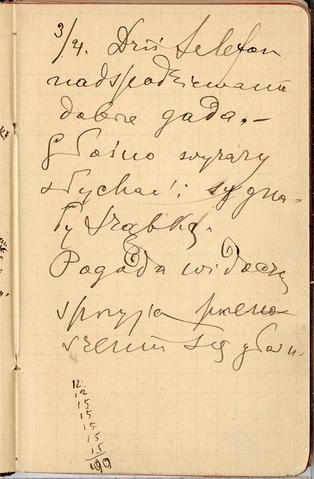 3/4. Dziś telefon
nadspodziewanie
dobrze gada. –
Głośno wyrazy
słychać i sygna-
ły trąbką.
Pogoda widocznie
sprzyja przeno-
szeniu się głosu.
12.
12
15
15.
15
15
15